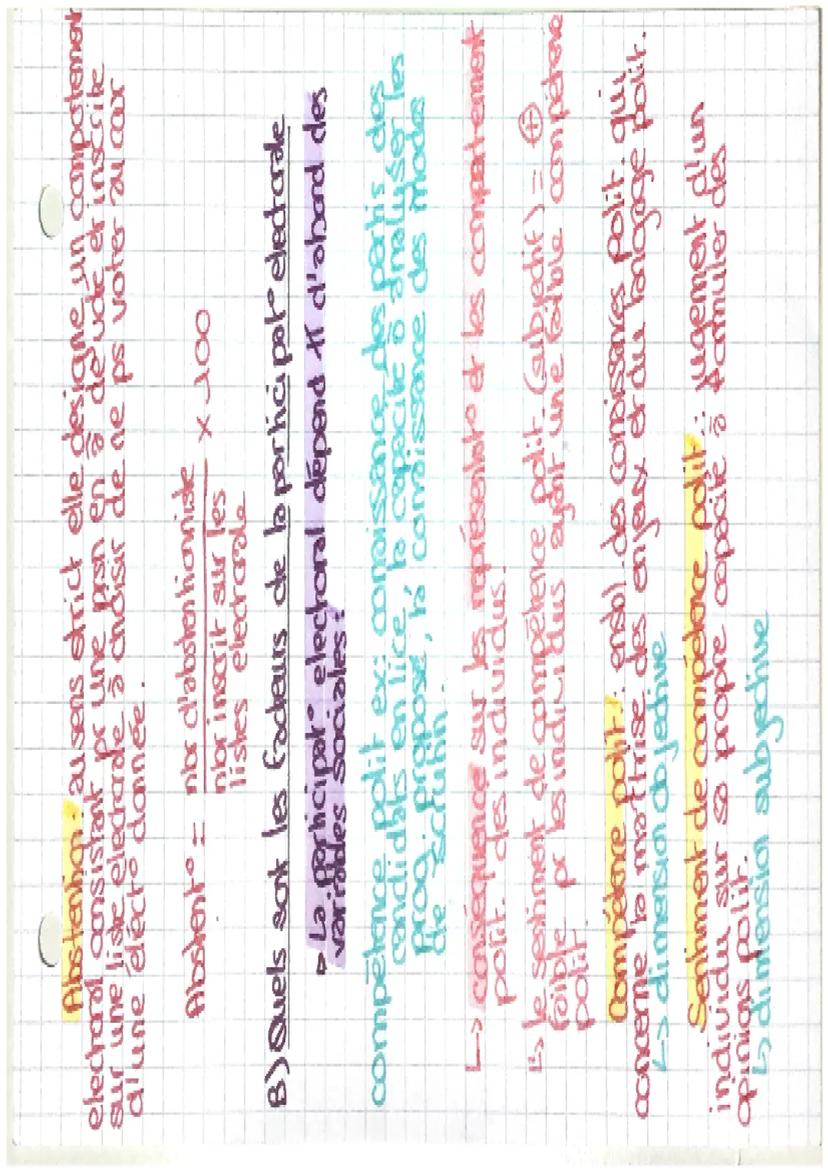 Abstention : au sens strict elle désigne un comportement
électoral consistant pr une prsn en â de vote et inscrite
sur une liste électorale à choisir de ne ps voter au cour
d'une élect° donnée.
Abstent° = nbr d'abstentioniste
nbr inscrit sur les
listes électorale
x 100
B) Quels sont les facteurs de la participat° électorale
La participat° électoral dépend tt d'abord des
variables sociales :
compétence polit ex : connaissance des partis des
candidats en lice, la capacité à analyser les
prog proposé, la connaissance des modes
de scrutin.
↳ conséquence sur les représentat° et les comportement
polit. des individus.
↳ le sentiment de compétence polit. (subjectif) = ⊕
faible pr les individus ayant une faible compétence
polit.
Compétence polit : ensbl. des connaissances polit. qui
concerne la maîtrise des enjeux et du langage polit.
↳ dimension objective
Sentiment de compétence polit : jugement d'un
individu sur sa propre capacité à formuler des
opinions polit.
↳ dimension subjective